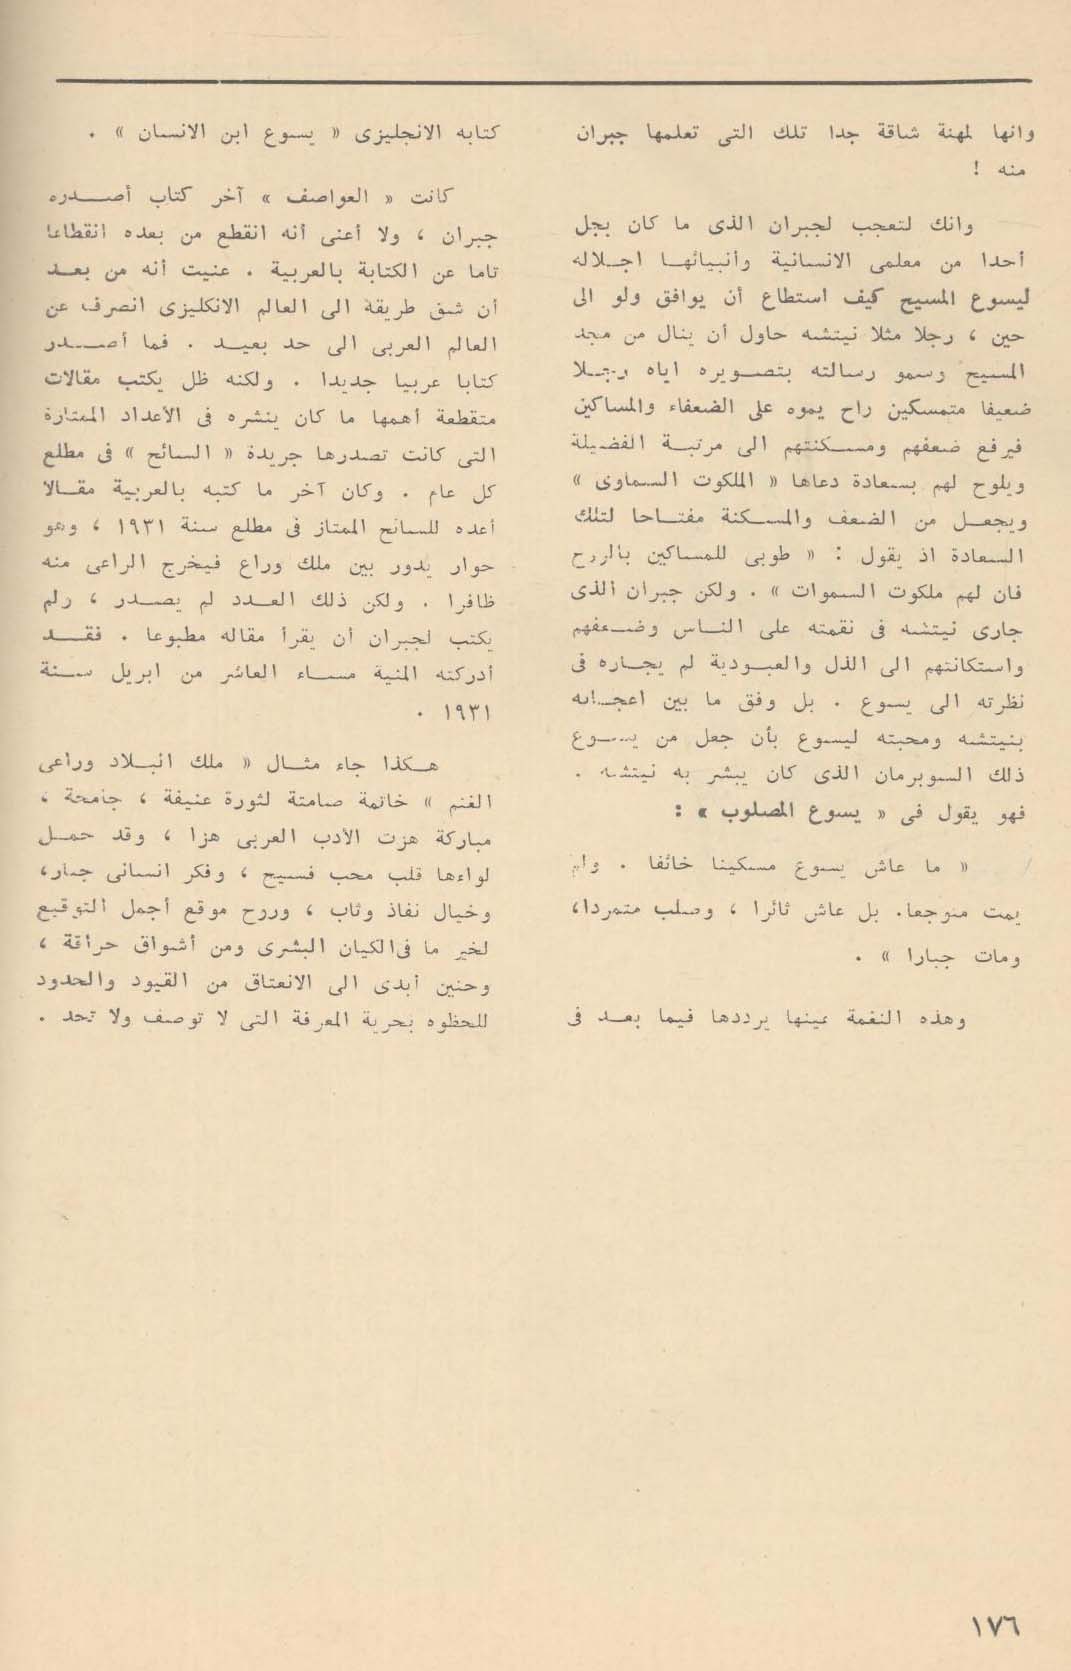 وانها لمهنة شاقة جدا تلك التى تعلمها جبران
منه !
وانك لتعجب لجبران الذى ما كان بجل
أحدا من معلمى الانسانية وأنبيائها اجلاله
ليسوع المسيح كيف استطاع أن يوافق ولو الى
حين ، رجلا مثلا نيتشه حاول أن ينال من مجد
المسيح وسمو رسالته بتصويره اياه رجلا
ضعيفا متمسكين راح يموه على الضعفاء والمساكين
فيرفع ضعفهم ومسكنتهم الى مرتبة الفضيلة
ويلوح لهم بسعادة دعاها « الملكوت السماوى »
ويجعل من الضعف والمسكنة مفتاحا لتلك
السعادة اذ يقول : « طوبى للمساكين بالروح
فان لهم ملكوت السموات » . ولكن جبران الذى
جارى نيتشه فى نقمته على الناس وضعفهم
واستكانتهم الى الذل والعبودية لم يجاره فى
نظرته الى يسوع . بل وفق ما بين اعجابه
بنيتشه ومحبته ليسوع بأن جعل من يسوع
ذلك السوبرمان الذى كان يبشر به نيتشه .
فهو يقول فى « يسوع المصلوب » :
« ما عاش يسوع مسكينا خائفا . ولم
يمت متوجعا. بل عاش ثائرا ، وصلب متمردا،
ومات جبارا » .
وهذه النغمة عينها يرددها فيما بعد فى
كتابه الانجليزى « يسوع ابن الانسان » .
كانت « العواصف » آخر كتاب أصدره
جبران ، ولا أعنى أنه انقطع من بعده انقطاعا
تاما عن الكتابة بالعربية . عنيت أنه من بعد
أن شق طريقه الى العالم الانكليزى انصرف عن
العالم العربى الى حد بعيد . فما أصدر
كتابا عربيا جديدا . ولكنه ظل يكتب مقالات
متقطعة أهمها ما كان ينشره فى الأعداد الممتازة
التى كانت تصدرها جريدة « السائح » فى مطلع
كل عام . وكان آخر ما كتبه بالعربية مقالا
أعده للسائح الممتاز فى مطلع سنة ١٩٣١ ، وهو
حوار يدور بين ملك وراع فيخرج الراعى منه
ظافرا . ولكن ذلك العدد لم يصدر ، ولم
يكتب لجبران أن يقرأ مقاله مطبوعا . فقد
أدركته المنية مساء العاشر من ابريل سنة
١٩٣١ .
هكذا جاء مثال « ملك البلاد وراعى
الغنم » خاتمة صامتة لثورة عنيفة ، جامحة ،
مباركة هزت الأدب العربى هزا ، وقد حمل
لواءها قلب محب فسيح ، وفكر انسانى جبار،
وخيال نفاذ وثاب ، وروح موقع أجمل التوقيع
لخير ما فى الكيان البشرى ومن أشواق حرأقة ،
وحنين أبدى الى الانعتاق من القيود والحدود
للحظوه بحرية المعرفة التى لا توصف ولا تحد .
١٧٦